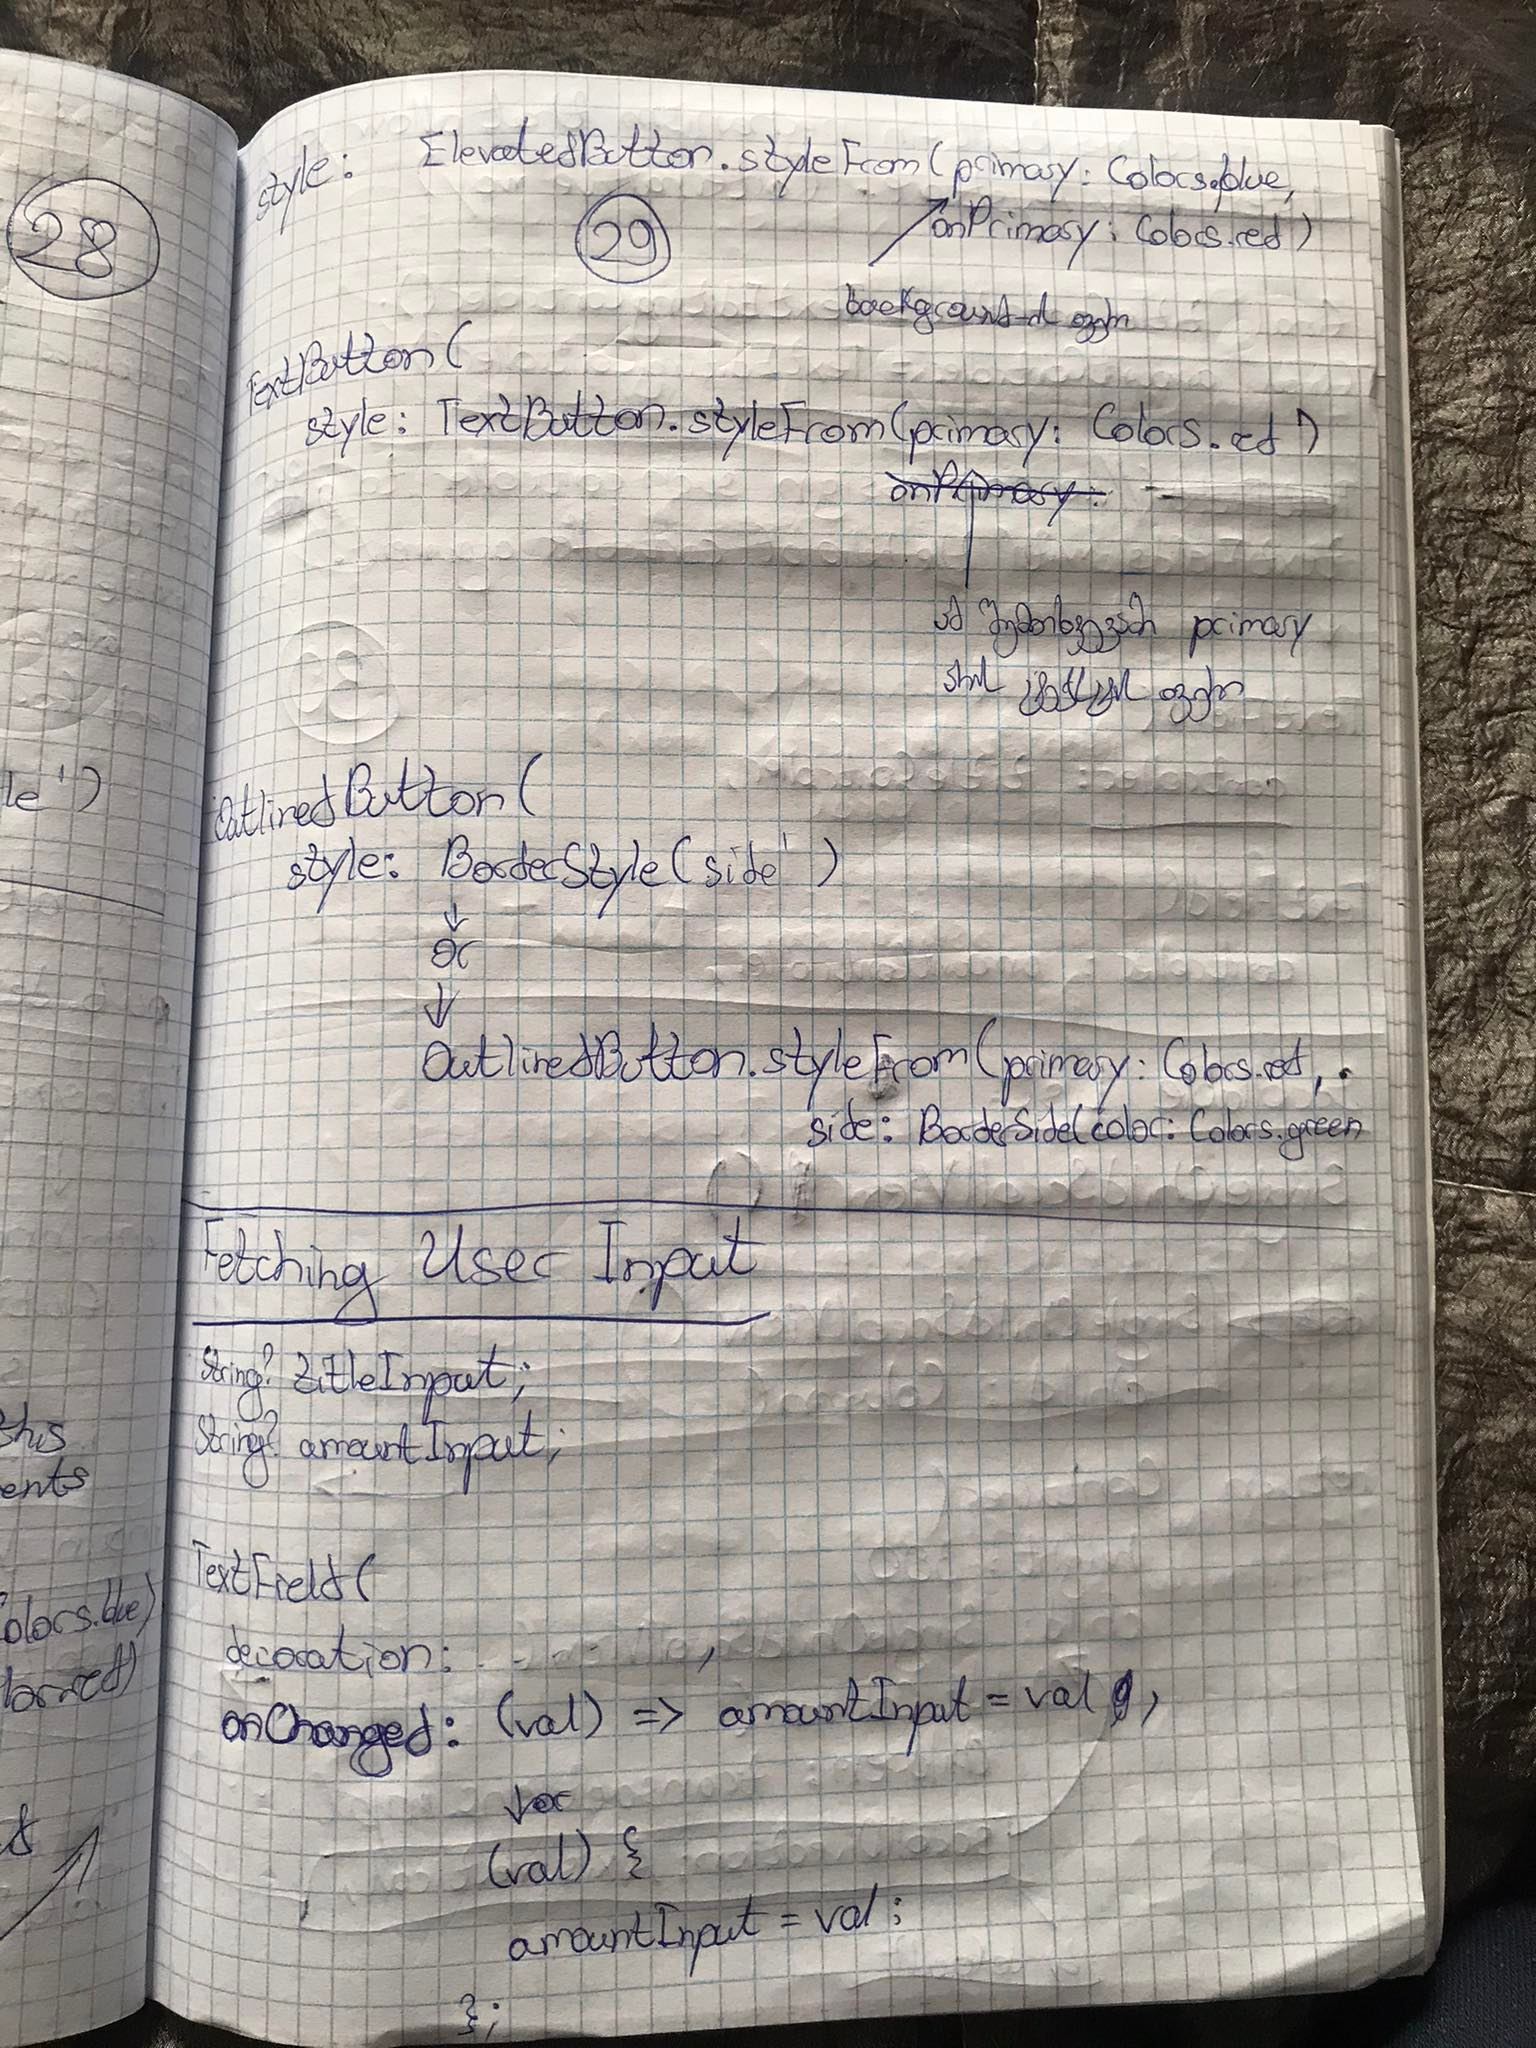 28
le')
this
ents
Colors.blue)
style: ElevatedButton.styleFrom(primary: Colors.blue,
29
onPrimary: Colors.red)
background-ის ფერი
TextButton(
style: TextButton.styleFrom(primary: Colors.red)
onPrimary:
ამ შემთხვევაში primary
არის ტექსტის ფერი
OutlinedButton(
style: BorderStyle(side')
or
OutlinedButton.styleFrom(primary: Colors.red,
side: BorderSide(color: Colors.green
Fetching User Input
String? titleInput;
String? amountInput;
TextField(
decoration: - - - - - - ,
onChanged: (val) => amountInput = val ,
or
(val) {
amountInput = val;
};